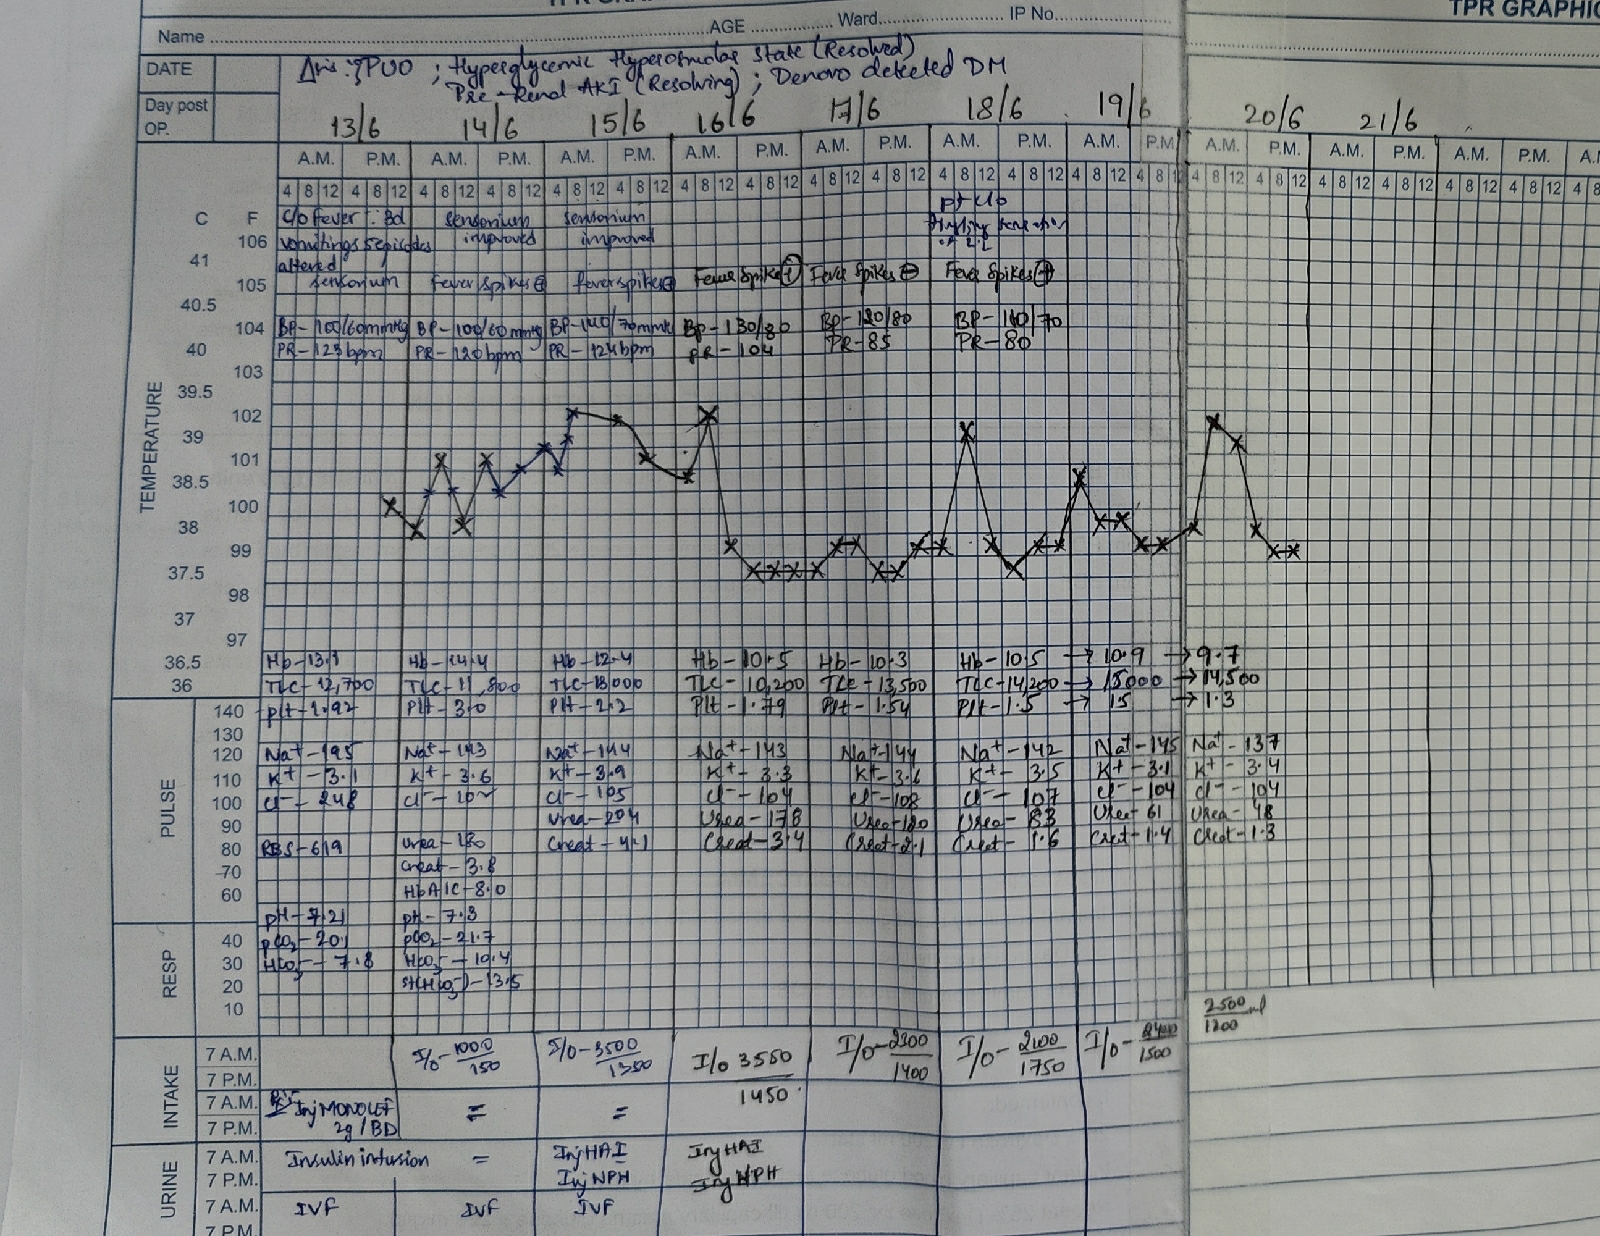 TPR GRAPHIC
Name AGE Ward IP No
DATE
PUO ; Hyperglycemic Hyperosmolar State (Resolved)
Pre-Renal AKI (Resolving) ; Denovo detected DM
Day post OP.
13/6 14/6 15/6 16/6 17/6 18/6 19/6 20/6 21/6
A.M. P.M. A.M. P.M. A.M. P.M. A.M. P.M. A.M. P.M. A.M. P.M. A.M. P.M. A.M. P.M. A.M. P.M. A.M. P.M.
4 8 12 4 8 12 4 8 12 4 8 12 4 8 12 4 8 12 4 8 12 4 8 12 4 8 12 4 8 12 4 8 12 4 8 12 4 8 12 4 8 12 4 8 12 4 8 12 4 8 12 4 8 12 4 8 12 4 8 12
C F c/o fever sensorium sensorium pt c/o
106 vomitings 5 episodes improved improved
41 altered
105 sensorium fever spikes ⊕ fever spikes Fever spikes ⊕ Fever spikes ⊖ Fever spikes ⊕
40.5
104 BP-100/60mmHg BP-100/60mmHg BP-140/70mmHg BP-130/80 BP-120/80 BP-110/70
40 PR-123bpm PR-120bpm PR-124bpm PR-104 PR-85 PR-80
103
39.5
102
39
101
38.5
100
38
99
37.5
98
37
97
TEMPERATURE
36.5 Hb-13.1 Hb-14.4 Hb-12.4 Hb-10.5 Hb-10.3 Hb-10.5 → 10.9 → 9.7
36 TLC-12,700 TLC-11,800 TLC-13,000 TLC-10,200 TLC-13,500 TLC-14,200 → 15000 → 14,500
140 Plt-1.92 Plt-3.0 Plt-2.2 Plt-1.79 Plt-1.54 Plt-1.5 → 15 → 1.3
130
120 Na+-195 Na+-143 Na+-144 Na+-143 Na+-144 Na+-142 Na+-145 Na+-137
110 K+-3.1 K+-3.6 K+-3.9 K+-3.3 K+-3.6 K+-3.5 K+-3.1 K+-3.4
100 Cl--248 Cl- Cl--105 Cl--104 Cl--108 Cl--107 Cl--104 Cl--104
90 Urea-204 Urea-178 Urea- Urea-83 Urea-61 Urea-48
80 RBS-619 Urea- Creat-4.1 Creat-3.4 Creat-2.1 Creat-1.6 Creat-1.4 Creat-1.3
PULSE
70 Creat-3.8
60 HbA1C-8.0
pH-7.21 pH-7.3
40 pCO2-20.1 pCO2-21.7
30 HCO3--7.8 HCO3--10.4
20 -13.5
10
RESP
2500 ml
1200
7 A.M. I/O-1000/150 I/O-3500/1350 I/O 3550/1450 I/O-2300/1400 I/O-2100/1750 I/O-/1500
7 P.M.
7 A.M. Inj MONOCEF = =
7 P.M. 2g/BD
INTAKE
7 A.M. Insulin infusion = Inj HAI Inj HAI
7 P.M. Inj NPH Inj NPH
7 A.M. IVF IVF IVF
7 P.M.
URINE